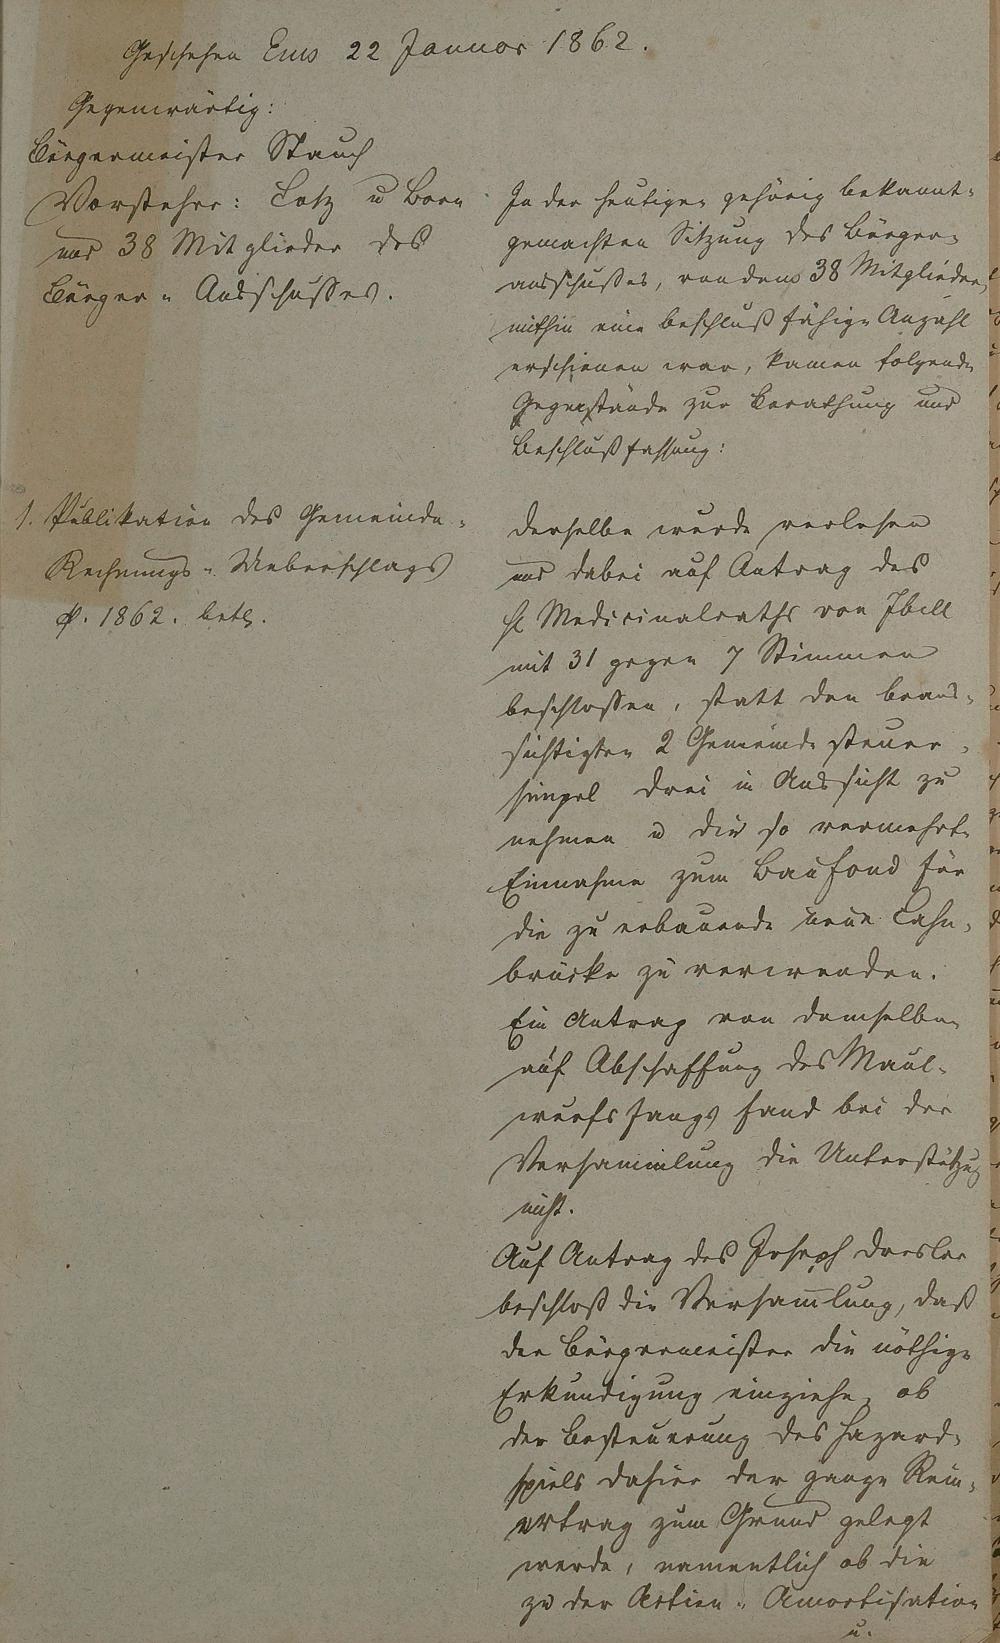 Geschehen Ems 22 Januar 1862.
Gegenwärtig:
Bürgermeister Stauch
Vorsteher: Lotz u Born
und 38 Mitglieder des
Bürger-Ausschußes.
In der heutigen gehörig bekannt-
gemachten Sitzung des Bürger-
ausschußes, von dem 38 Mitglieder,
mithin eine beschlußfähige Anzahl
erschienen war, kamen folgende
Gegenstände zur Berathung und
Beschlußfassung:
1. Publikation des Gemeinde-
Rechnungs-Ueberschlags
p. 1862. betr.
Derselbe wurde verlesen
und dabei auf Antrag des
H Medicinalraths von Ibell
mit 31 gegen 7 Stimmen
beschlossen, statt den beab-
sichtigten 2 Gemeindesteuer-
simpel drei in Aussicht zu
nehmen u die so vermehrte
Einnahme zum Baufond für
die zu erbauende neue Lahn-
brücke zu verwenden.
Ein Antrag von demselben
auf Abschaffung des Maul-
wurfsfangs fand bei der
Versammlung die Unterstützung
nicht.
Auf Antrag des Joseph Dresler
beschloß die Versammlung, daß
der Bürgermeister die nöthige
Erkundigung einziehe, ob
der Besteuerung des Hazard-
spiels dahier der ganze Rein-
ertrag zum Grund gelegt
werde, namentlich ob die
zu der Actien-Amortisation
u.